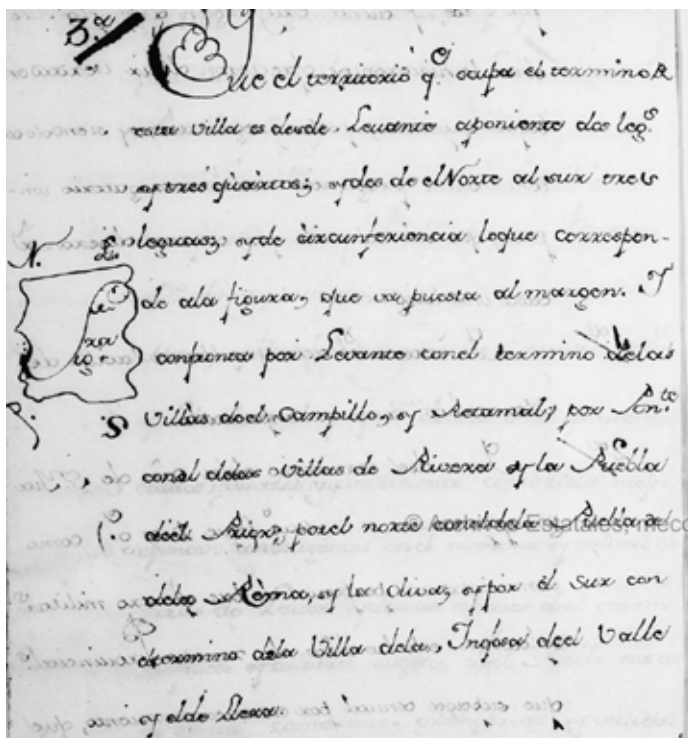 3.ª
Que el territorio q.e ocupa el termino de
esta Villa es desde Levante aponiente dos leg.s
y tres quartas; y des de el Norte al sur tres
N. L. leguas; y de circunferencia loque correspon-
de ala figura, que va puesta al margen. Y
confronta por Levante conel termino delas
S Villas deel Campillo, y Retamal; por Pon.te
conel delas Villas de Rivera y la Puebla
P. deel Prior; por el norte conel dela Puebla
dela Reyna, y la Oliva; y por el sur con
termino dela Villa dela Ynojosa deel Valle
y elde Llera.
© Estatales, mecd